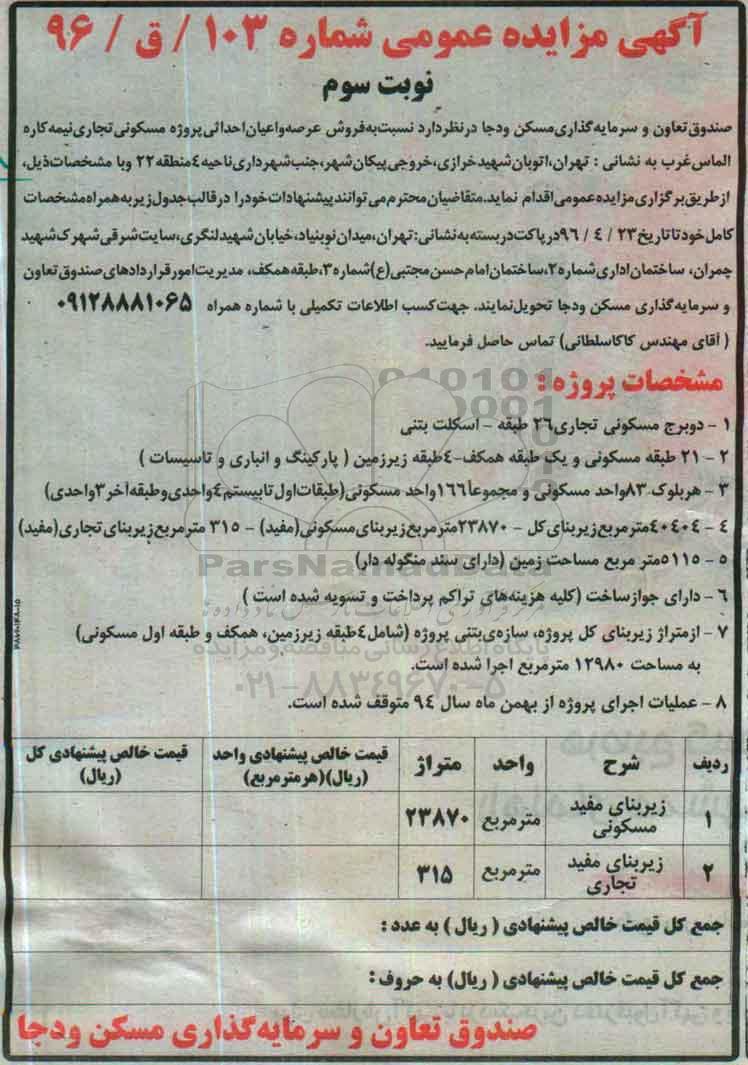 آگهی مزایده عمومی شماره ۱۰۳ / ق / ۹۶
نوبت سوم
صندوق تعاون و سرمایه گذاری مسکن ودجا در نظر دارد نسبت به فروش عرصه و اعیان احداثی پروژه مسکونی تجاری نیمه کاره
الماس غرب به نشانی : تهران، اتوبان شهید خرازی، خروجی پیکان شهر، جنب شهرداری ناحیه ۴ منطقه ۲۲ وبا مشخصات ذیل،
از طریق برگزاری مزایده عمومی اقدام نماید. متقاضیان محترم می توانند پیشنهادات خود را در قالب جدول زیر به همراه مشخصات
کامل خود تا تاریخ ۲۳ / ۴ / ۹۶ در پاکت در بسته به نشانی: تهران، میدان نوبنیاد، خیابان شهید لنگری، سایت شرقی شهرک شهید
چمران، ساختمان اداری شماره ۲، ساختمان امام حسن مجتبی (ع) شماره ۳، طبقه همکف، مدیریت امور قراردادهای صندوق تعاون
و سرمایه گذاری مسکن ودجا تحویل نمایند. جهت کسب اطلاعات تکمیلی با شماره همراه ۰۹۱۲۸۸۸۱۰۶۵
( آقای مهندس کاکاسلطانی) تماس حاصل فرمایید.
مشخصات پروژه :
۱ - دوبرج مسکونی تجاری ۲۶ طبقه - اسکلت بتنی
۲ - ۲۱ طبقه مسکونی و یک طبقه همکف-۴ طبقه زیرزمین ( پارکینگ و انباری و تاسیسات )
۳ - هر بلوک ۸۳ واحد مسکونی و مجموعاً ۱۶۶ واحد مسکونی (طبقات اول تا بیستم ۴ واحدی و طبقه آخر ۳ واحدی)
۴ - ۴۰۴۰۴ متر مربع زیربنای کل - ۲۳۸۷۰ متر مربع زیربنای مسکونی (مفید) - ۳۱۵ متر مربع زیربنای تجاری (مفید)
۵ - ۵۱۱۵ متر مربع مساحت زمین (دارای سند منگوله دار)
۶ - دارای جواز ساخت (کلیه هزینه های تراکم پرداخت و تسویه شده است )
۷ - از متراژ زیربنای کل پروژه، سازه ی بتنی پروژه (شامل ۴ طبقه زیرزمین، همکف و طبقه اول مسکونی)
به مساحت ۱۲۹۸۰ مترمربع اجرا شده است.
۸ - عملیات اجرای پروژه از بهمن ماه سال ۹۴ متوقف شده است.
ردیف شرح واحد متراژ قیمت خالص پیشنهادی واحد (ریال)(هرمترمربع) قیمت خالص پیشنهادی کل (ریال)
۱ زیربنای مفید مسکونی مترمربع ۲۳۸۷۰
۲ زیربنای مفید تجاری مترمربع ۳۱۵
جمع کل قیمت خالص پیشنهادی ( ریال ) به عدد :
جمع کل قیمت خالص پیشنهادی ( ریال) به حروف :
صندوق تعاون و سرمایه گذاری مسکن ودجا
ParsNamadData
پایگاه اطلاع رسانی مناقصه و مزایده
۰۲۱-۸۸۳۴۹۶۷۰-۵